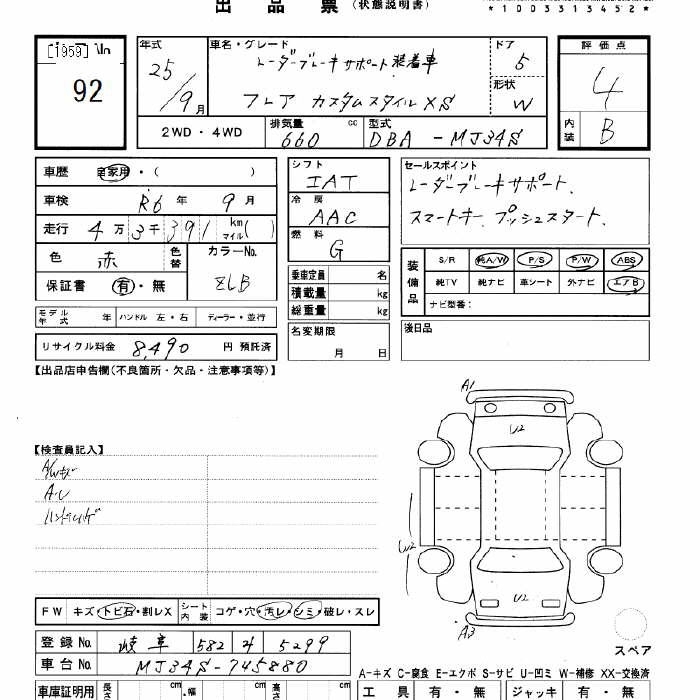 出品票(状態説明書)
*1003313452*
[1959]
92
年式 25/9月
車名・グレード レーダーブレーキサポート装着車
フレア カスタムスタイルXS
ドア 5
形状 W
評価点 4
内装 B
2WD・4WD
排気量 660 cc
型式 DBA-MJ34S
車歴 自家用・( )
車検 R6年 9月
走行 4万3千391 km マイル( )
色 赤 色替
カラーNo. ZLB
保証書 有・無
モデル年式 年 ハンドル 左・右 ディーラー・並行
リサイクル料金 8,490 円 預託済
シフト IAT
冷房 AAC
燃料 G
乗車定員 名
積載量 kg
総重量 kg
名変期限 月 日
セールスポイント
レーダーブレーキサポート、
スマートキー、プッシュスタート、
装備品 S/R 純A/W P/S P/W ABS
純TV 純ナビ 革シート 外ナビ エアB
ナビ型番:
後日品
【出品店申告欄(不良箇所・欠品・注意事項等)】
【検査員記入】
A/Wキズ
A・U
A1
U2
W2
U2
A3
スペア
FW キズ・トビ石・割レX シート内装 コゲ・穴・汚レ・シミ・破レ・スレ
登録No. 岐阜 582 わ 5299
車台No. MJ34S-745880
A-キズ C-腐食 E-エクボ S-サビ U-凹ミ W-補修 XX-交換済
車庫証明用 長さ cm・幅 cm 高さ cm
工具 有・無 ジャッキ 有・無